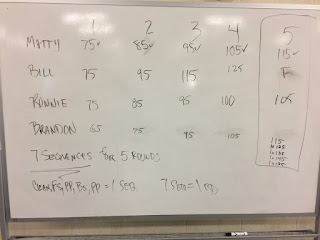 1 2 3 4 5
MATTY 75✓ 85✓ 95✓ 105✓ 115✓
BILL 75 95 115 125 F
RONNIE 75 85 95 100 105
BRANDON 65 75 95 105 115
7 SEQUENCES for 5 ROUNDS
PP, BS, PP = 1 SEQ 7 SEQ = 1